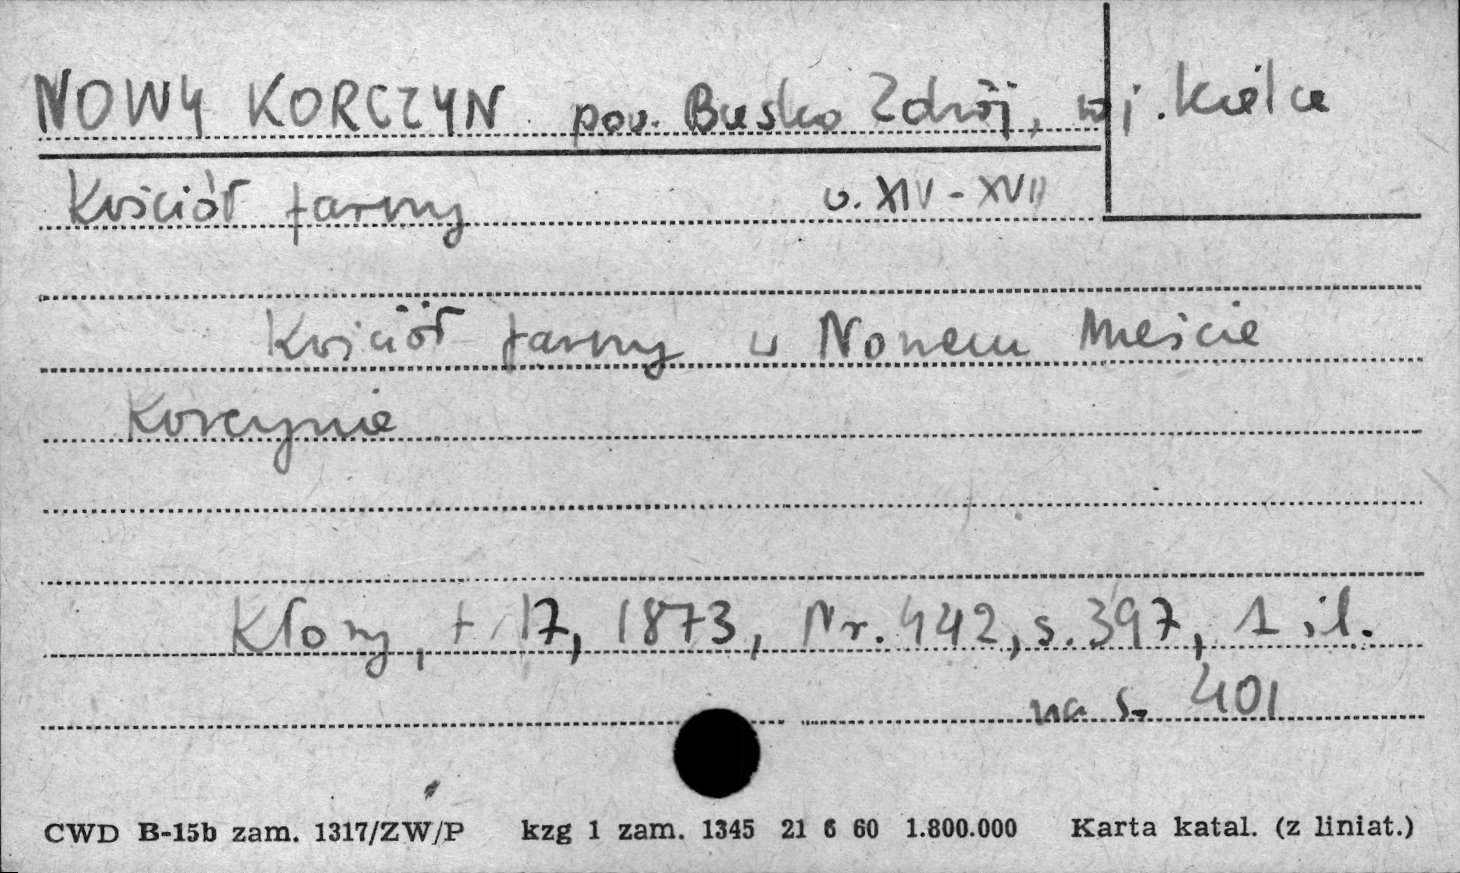 NOWY KORCZYN pow. Busko Zdrój, woj. Kielce
Kościół farny w. XIV - XVII
Kościół farny w Nowem Mieście
Korczynie
Kłosy, t. 17, 1873, Nr. 442, s. 397, 1 il.
na s. 401
CWD B-15b zam. 1317/ZW/P kzg 1 zam. 1345 21 6 60 1.800.000 Karta katal. (z liniat.)